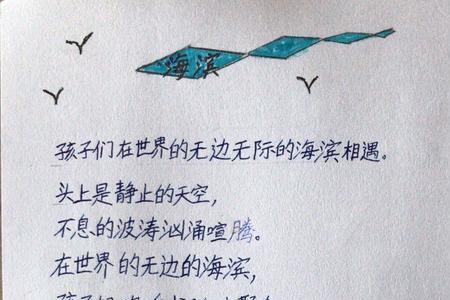 海滨
孩子们在世界的无边无际的海滨相遇。
头上是静止的天空，
不息的波涛汹涌喧腾。
在世界的无边的海滨，
孩子们